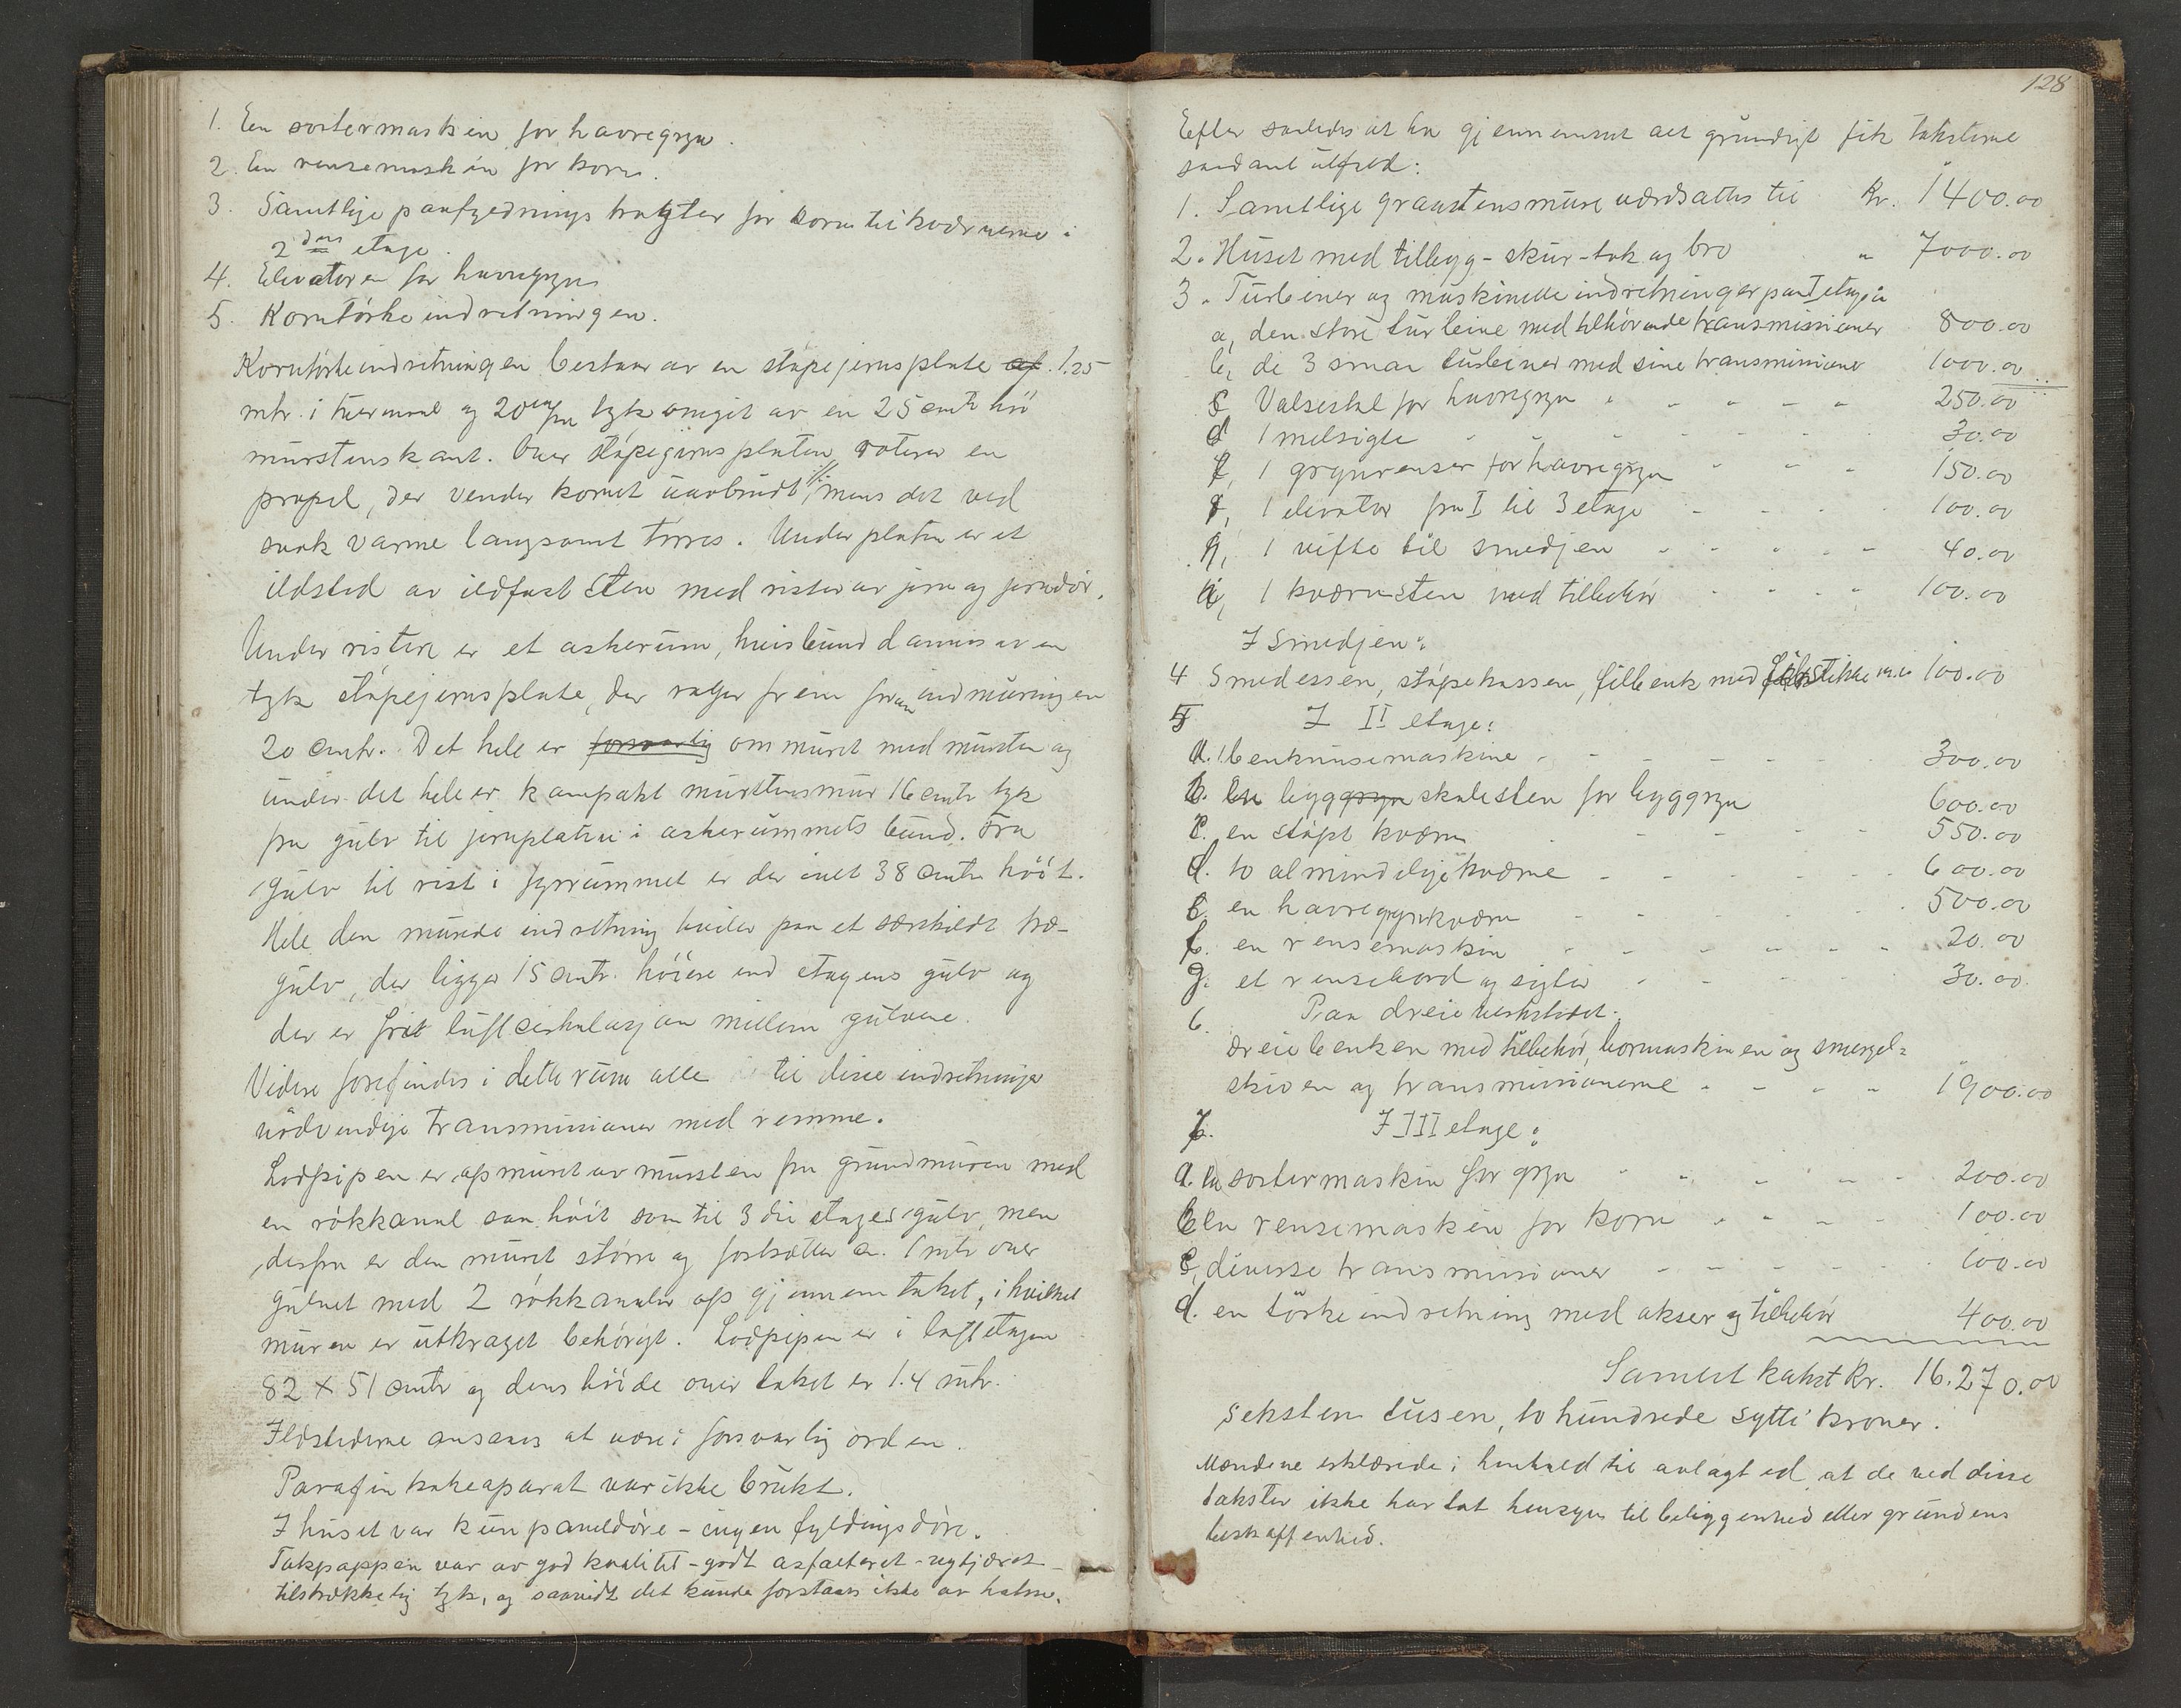 1. En sortermaskin for havregryn.
2. En rensemaskin for korn.
3. Samtlige paafyldnings tragter for korn til kværnerne i
2den etage.
4. Elevatoren for havregryn
5. Korntørkeindretningen.
Korntørkeindretningen bestaar av en støpejernsplate af 1.25
mtr. i tvermaal og 20 m/m tyk omgit av en 25 cmtr høi
murstenskant. Over støpejernsplaten roterer en
propel, der vender kornet uavbrudt, mens det ved
svak varme langsomt tørres. Under platen er et
ildsted av ildfast sten med rister av jern og jerndør.
Under ristene er et askerum, hvis bund dannes av en
tyk støpejernsplate, der rager frem foran indmuringen
20 cmtr. Det hele er forsvarlig ommuret med mursten og
under det hele er kompakt murstensmur 16 cmtr tyk
fra gulv til jernplaten i askerummets bund. Fra
gulv til rist i fyrrummet er der ialt 38 cmtr høit.
Hele den murede indretning hviler paa et særskildt træ-
gulv, der ligger 15 cmtr. høiere end etagens gulv og
der er frit luftcirkulasjon mellem gulvene.
Videre forefindes i dette rum alle til disse indretninger
nødvendige transmissioner med remme.
Lodpipen er opmuret av mursten fra grundmuren med
en røkkanal saa høit som til 3die etages gulv, men
derfra er den muret større og fortsætter ca. 1 mtr over
gulvet med 2 røkkanaler op gjennem taket, i hvilket
muren er utkraget behørigt. Lodpipen er i loftetagen
82 x 51 cmtr og dens høide over taket er 1.4 mtr.
Ildstederne ansaaes at være i forsvarlig orden.
Parafin kokeaparat var ikke brukt.
I huset var kun paneldøre - ingen fyldingsdøre.
Takpappen var av god kvalitet - godt asfalteret - nytjæret -
tilstrækkelig tyk, og saavidt det kunde forstaaes ikke av halm.
128
Efter saaledes at ha gjennemset alt grundigt fik taksterne
saadant utfald:
1. Samtlige graastensmure værdsattes til Kr. 1400.00
2. Huset med tilbygg - skur - tak og bro " 7000.00
3. Turbiner og maskinelle indretninger paa I etage
a, den store turbine med tilhørende transmissioner 800.00
b, de 3 smaa turbiner med sine transmissioner 1000.00
c Valsestol for havregryn " - - - - 250.00
d 1 melsigte - - - - - - 30.00
f, 1 grynrenser for havregryn - - - 150.00
g, 1 elevator fra I til 3 etage - - - 100.00
h, 1 vifte til smedjen - - - - 40.00
i, 1 kværnsten med tilbehør - - - - 100.00
I smedjen:
4 Smedessen, støpekassen, filbenk med skrustikke m.m 100.00
5 I II etage:
a. 1 benknusemaskine - - - - - - 300.00
b. en bygggryn skalesten for byggryn 600.00
c. en støpt kværn - - - - 550.00
d. to almindelige kværne - - - - - 600.00
e. en havregrynkværn - - - - - 500.00
f. en rensemaskin - - - - - 20.00
g. et rensebord og sigter - - - - 30.00
6. Paa dreieverkstedet.
Dreiebenken med tilbehør, bormaskinen og smergel=
skiven og transmissionerne - - - - 1900.00
7. I III etage:
a. en sortermaskin for gryn - - - - - 200.00
b en rensemaskin for korn - - - - 100.00
c, diverse transmissioner - - - - - 100.00
d. en tørkeindretning med akser og tilbehør 400.00
Samlet takst Kr. 16.270.00
Seksten tusen, to hundrede sytti kroner.
Mændene erklærede i henhold til avlagt ed, at de ved disse
takster ikke har tat hensyn til beliggenhed eller grundens
beskaffenhed.